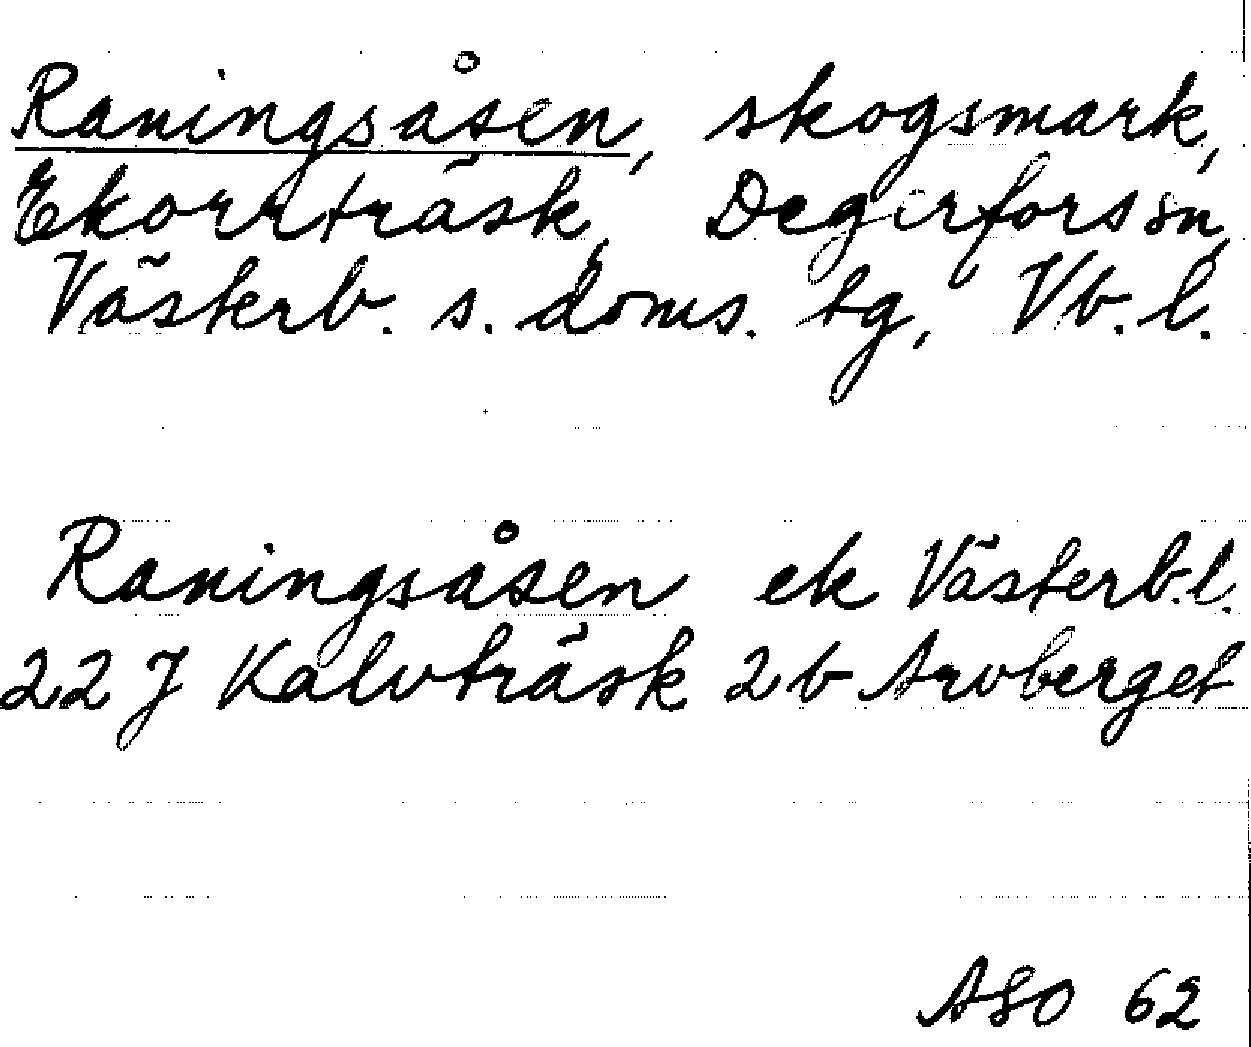 Raningsåsen, skogsmark,
Ekorrträsk, Degerfors sn,
Västerb. s. doms. tg, Vb. l.
Raningsåsen ek Västerb.l.
22 J Kalvträsk 2 b Arvberget
ASO 62